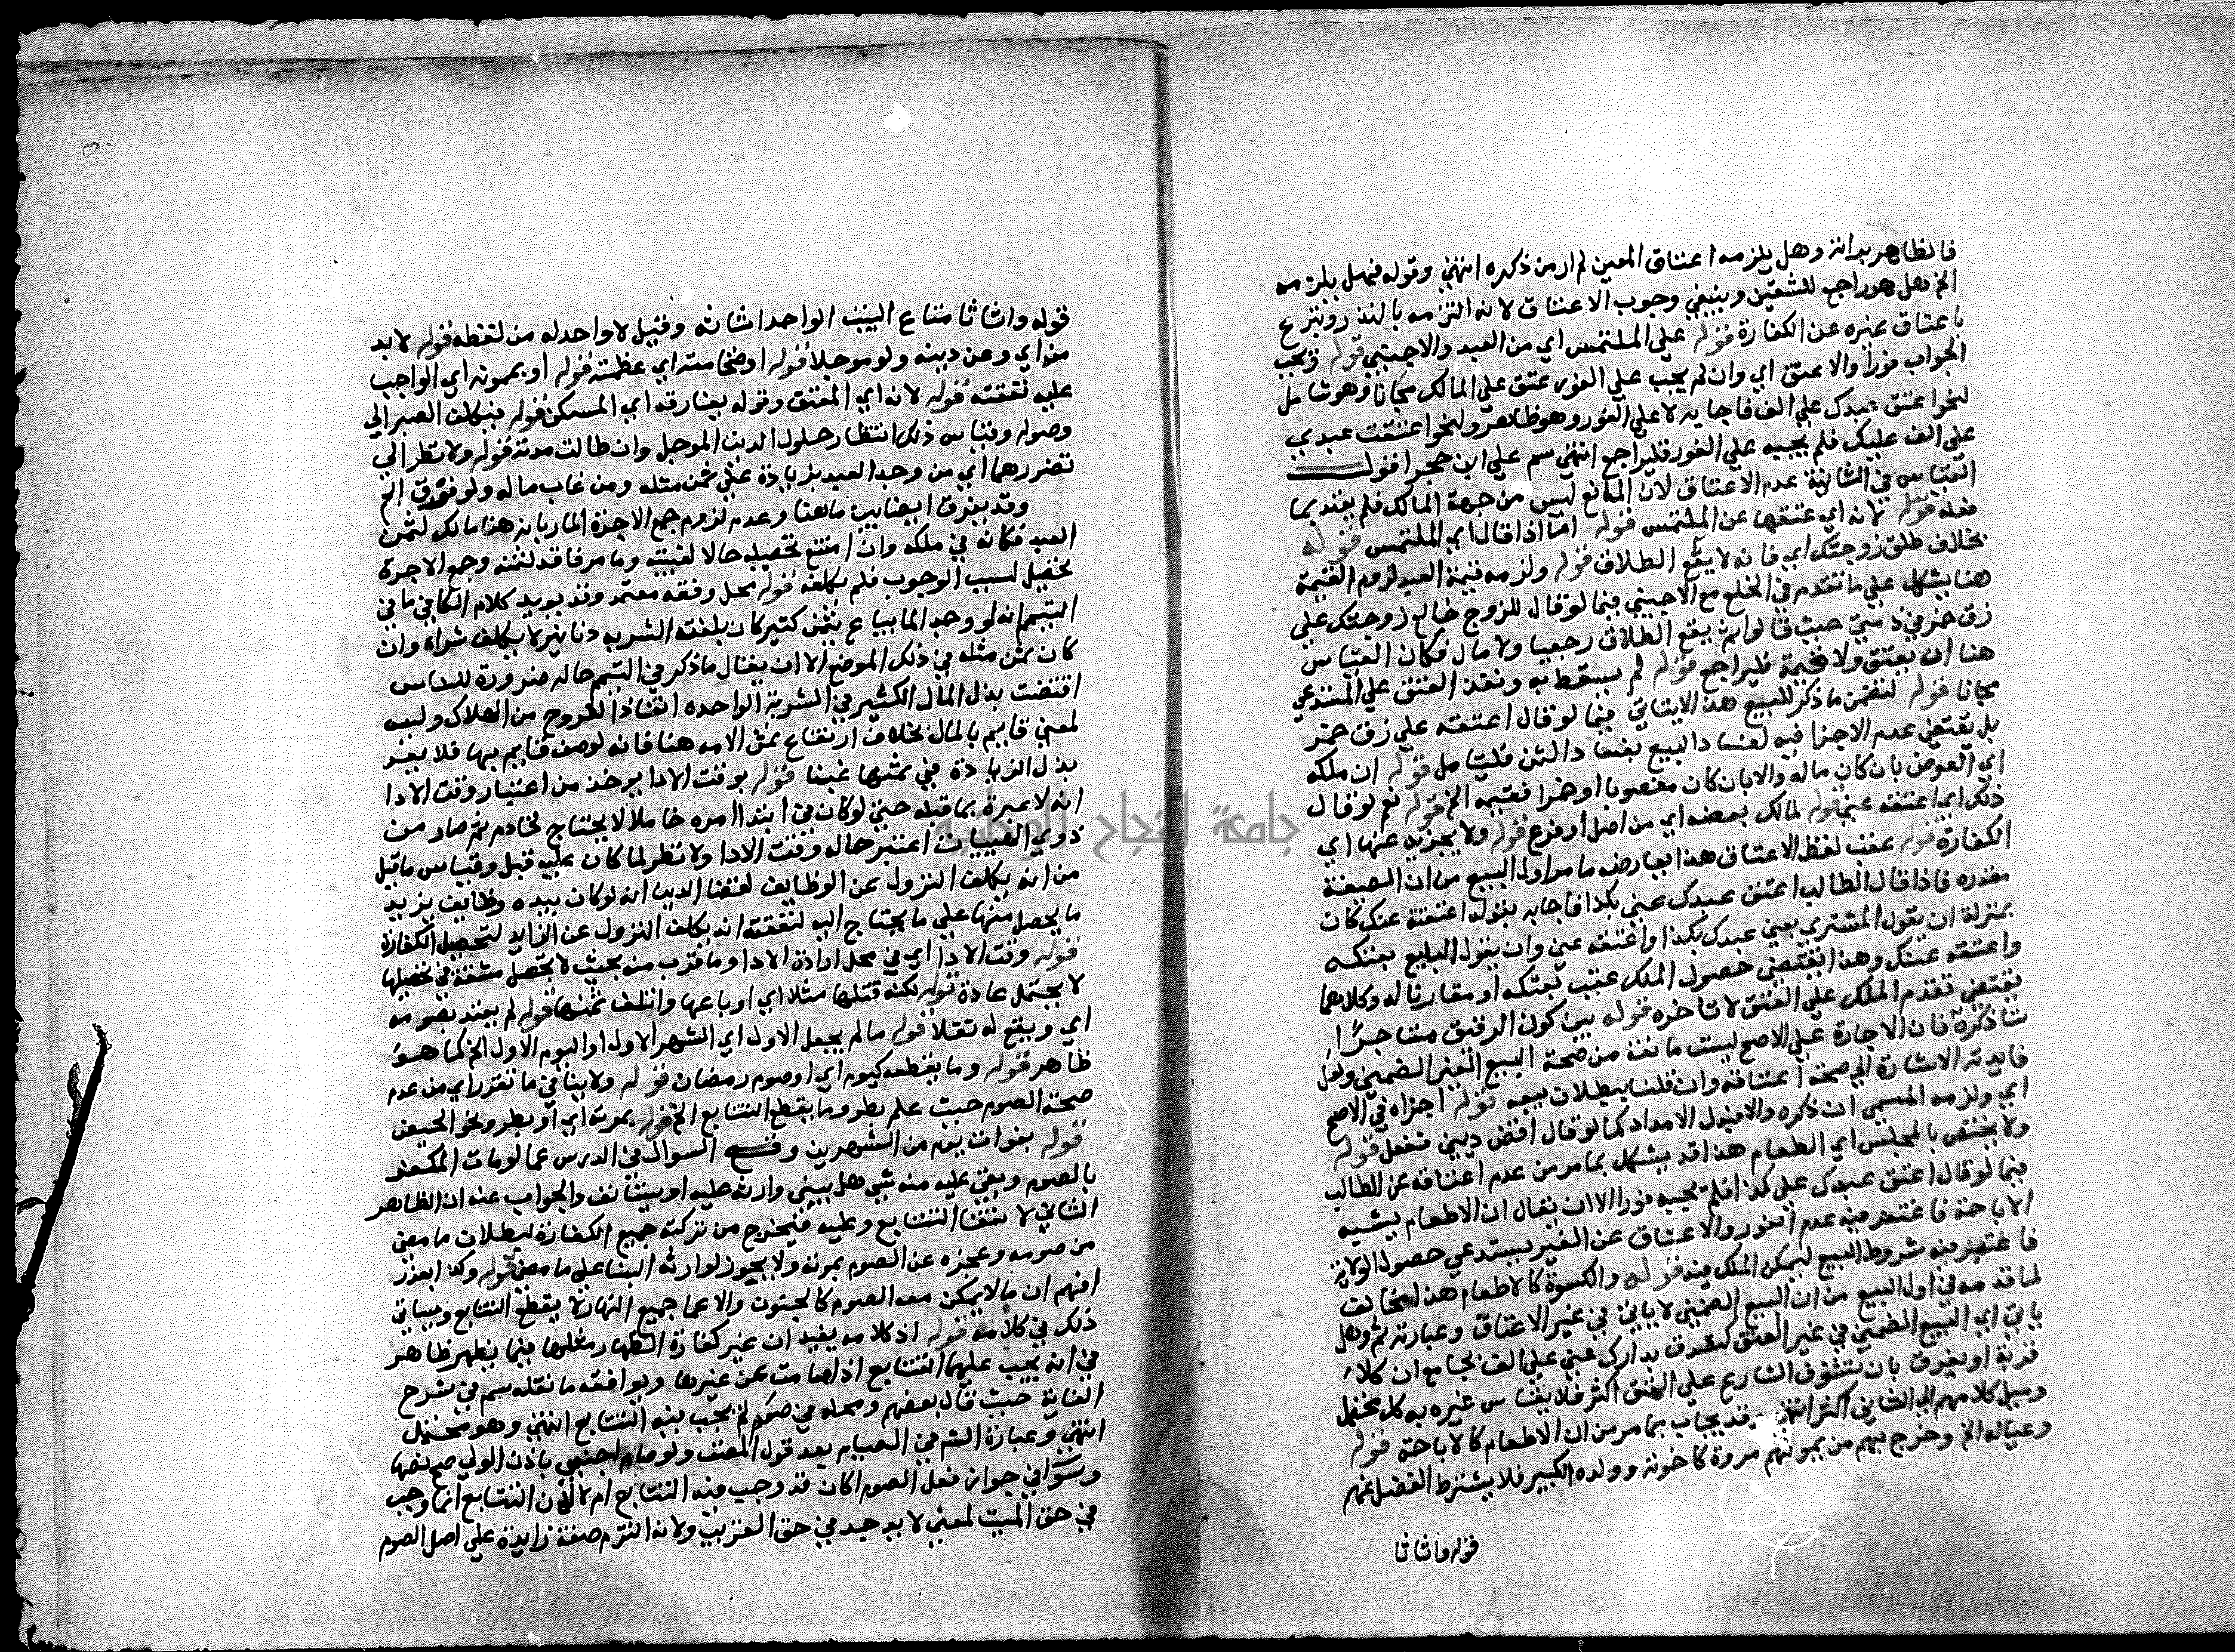 فالظاهر بدائه وهل يلزمه اعتاق المعين لم ار من ذكره انتهي وقوله فهل يلزمه
الخ هل هو راجع للشقين وينبغي وجوب الاعتاق لانه التزمه بالنذر
باعتاق غيره عن الكفارة قوله علي الملتمس اي من العبد والاجنبي قوله ويجب
الجواب فورا والا عتق اي وان لم يجب علي الفور عتق علي المالك مجانا وهو شامل
لنحو اعتق عبدك علي الف فاجابه لا علي الفور وهو ظاهر ولنحو اعتقت عبدي
علي الف عليك فلم يجبه علي الفور فليراجع انتهي سم علي ابن حجر اقول
القياس في الثانية عدم الاعتاق لان المانع ليس من جهة المالك فلم يعتد بما
فعله قوله لانه اي عتقها عن الملتمس قوله اما اذا قال اي الملتمس قوله
بخلاف طلق زوجتك اي فانه لا يقع الطلاق قوله ولزمه قيمة العبد لزوم القيمة
هنا يشكل علي ما تقدم في الخلع مع الاجنبي فيما لو قال للزوج خالع زوجتك علي
زق خمر في ذمتي حيث قالوا ثم يقع الطلاق رجعيا ولا مال فكان القياس
هنا ان يعتق ولا قيمة فليراجع قوله لم يسقط به ونفذ العتق علي المستدعي
مجانا قوله لتضمن ما ذكر للبيع هذا لا يتاتي فيما لو قال اعتقه علي زق خمر
بل يقتضي عدم الاجزا فيه لفساد البيع بفساد الثمن فليتامل قوله ان ملكه
اي العوض بان كان ماله والا بان كان مغصوبا او خمرا فقيمه الخ قوله نعم لو قال
ذلك اي اعتقه عني قوله لمالك بعضه اي من اصل او فرع قوله ولا يجزيه عنها اي
الكفارة قوله عقب لفظ الاعتاق هذا يعارضه ما مر اول البيع من ان الصيغة
مقدره فاذا قال الطالب اعتق عبدك عني بكذا فاجابه بقوله اعتقته عنك كان
بمنزلة ان يقول المشتري بعني عبدك بكذا واعتقه عني وان يقول البايع بعتكه
واعتقه عنك وهذا يقتضي حصول الملك عقب بعتكه او مقارنا له وكلاهما
يقتضي تقدم الملك علي العتق لا تاخره قوله بين كون الرقيق مستاجرا
فان الاجارة علي الاصح ليست مانعة من صحة البيع الغير الضمني ولعل
فايدته الاشارة الي صحة اعتاقه وان قلنا ببطلان بيعه قوله اجزاه في الاصح
اي ولزمه المسمي ان ذكره والا فبدل الامداد كما لو قال اقض ديني ففعل قوله
ولا يختص بالمجلس اي الطعام هذا قد يشكل بما مر من عدم اعتاقه عن الطالب
فيما لو قال اعتق عبدك علي كذا فلم يجبه فورا الا ان يقال ان الاطعام يشبه
الاباحة فاغتفر فيه عدم الفور والاعتاق عن الغير يستدعي حصول الولاية
فاعتبر فيه شروط البيع ليمكن الملك فيه قوله والكسوة كالاطعام هذا مخالف
لما قدمه في اول البيع من ان البيع الضمني لا ياتي في غير الاعتاق وعبارته ثم وهل
ياتي اي البيع الضمني في غير العتق كتصدق بدارك عني علي الف بجامع ان كلا
قربة او يفرق بان تشوف الشارع علي العتق اكثر فلا يقاس غيره به كل محتمل
وميل كلامهم الي الثاني اكثر انتهي قد يجاب بما مر من ان الاطعام كالاباحة قوله
وعياله الخ وخرج بهم من يمونهم مروة كاخوته وولده الكبير فلا يشترط الفضل عنهم
قوله واثاثا
قوله واثاثا متاع البيت الواحد اثاثه وقيل لا واحد له من لفظه قوله لا بد
منه اي وعن دينه ولو موجلا قوله او ضخامته اي عظمته قوله او بمونه اي الواجب
عليه نفقته قوله لانه اي المعتق وقوله بمفارقه اي المسكن قوله فيكلف الصبر الي
وصوله وقياس ذلك انتظار حلول الدين الموجل وان طالت مدته قوله ولا نظر الي
تضررهما اي من وجد العبد بزيادة علي ثمن مثله ومن غاب ماله ولو فوق الخ
وقد يفرق ايضا بين ما هنا وعدم لزوم جمع الاجرة المار بانه هنا مالك لثمن
العبد فكانه في ملكه وان امتنع تحصيله حالا لغيبته وما مر فاقد لثمنه وجمع الاجرة
تحصيل لسبب الوجوب فلم يكلفه قوله محل وقفه معتمد وقد يويد كلام الكافي ما في
التيمم انه لو وجد الما يباع بثمن كثير كان بلغت الشربه دنانير لا يكلف شراه وان
كان ثمن مثله في ذلك الموضع الا ان يقال ما ذكر في التيمم حاله ضرورة للناس
اقتضت بذل المال الكثير في الشربة الواحده انقاذا للروح من الهلاك وليس
لمعني قايم بالمال بخلاف ارتفاع ثمن الامه هنا فانه لوصف قايم بها فلا يعد
بذل الزيادة في ثمنها غبنا قوله بوقت الادا يوخذ من اعتبار وقت الادا
انه لا عبرة بما قبله حتي لو كان في ابتدا امره خاملا لا يحتاج لخادم ثم صار من
ذوي الهييات اعتبر حاله وقت الادا ولا نظر لما كان عليه قبل وقياس ما قيل
من انه يكلف النزول عن الوظايف لقضا الدين انه لو كان بيده وظايف يزيد
ما يحصل منها علي ما يحتاج اليه لنفقته انه يكلف النزول عن الزايد لتحصيل الكفارة
قوله وقت الادا اي في محل ارادة الادا وما قرب منه بحيث لا تحصل مشقة في تحصيلها
لا يحتمل عادة قوله لكنه قتلها مثلا اي او باعها واتلف ثمنها قوله لم يعتد بصومه
اي ويقع له نفلا قوله ما لم يجعل الاول اي الشهر الاول او اليوم الاول الخ كما هو
ظاهر قوله وما يقطعه كيوم اي او صوم رمضان قوله ولا ينافي ما تقرر اي من عدم
صحة الصوم حيث علم بطرو ما يقطع التتابع الخ قوله بموت اي او بطرو نحو الحيض
قوله بفوات يوم من الشهرين وقع السوال في الدرس عما لو مات المكفر
بالصوم وبقي عليه منه شي هل يبني وارثه عليه او يستانف والجواب عنه ان الظاهر
الثاني لانتفا التتابع وعليه فيخرج من تركته جميع الكفارة لبطلان ما مضي
من صومه وعجزه عن الصوم بموته ولا يجوز لوارثه البنا علي ما مضي قوله وكذا بعذر
افهم ان ما لا يمكن معه الصوم كالجنون والاغما جميع النهار لا يقطع التتابع وسياتي
ذلك في كلامه قوله اذ كلامه يفيد ان غير كفارة الظهار مثلها فيما يظهر ظاهر
في انه يجب عليها التتابع اذا صامت عن غيرها ويوافقه ما نقله سم في شرح
الغاية حيث قال بعضهم ومحله في صوم لم يجب فيه التتابع انتهي وهو محتمل
انتهي وعبارة الشم في الصيام بعد قول المصنف ولو صام اجنبي باذن الولي صح نصها
وسوا في جواز فعل الصوم اكان قد وجب فيه التتابع ام لا لان التتابع انما وجب
في حق الميت لمعني لا يوجد في حق القريب ولانه التزم صفة زايدة علي اصل الصوم